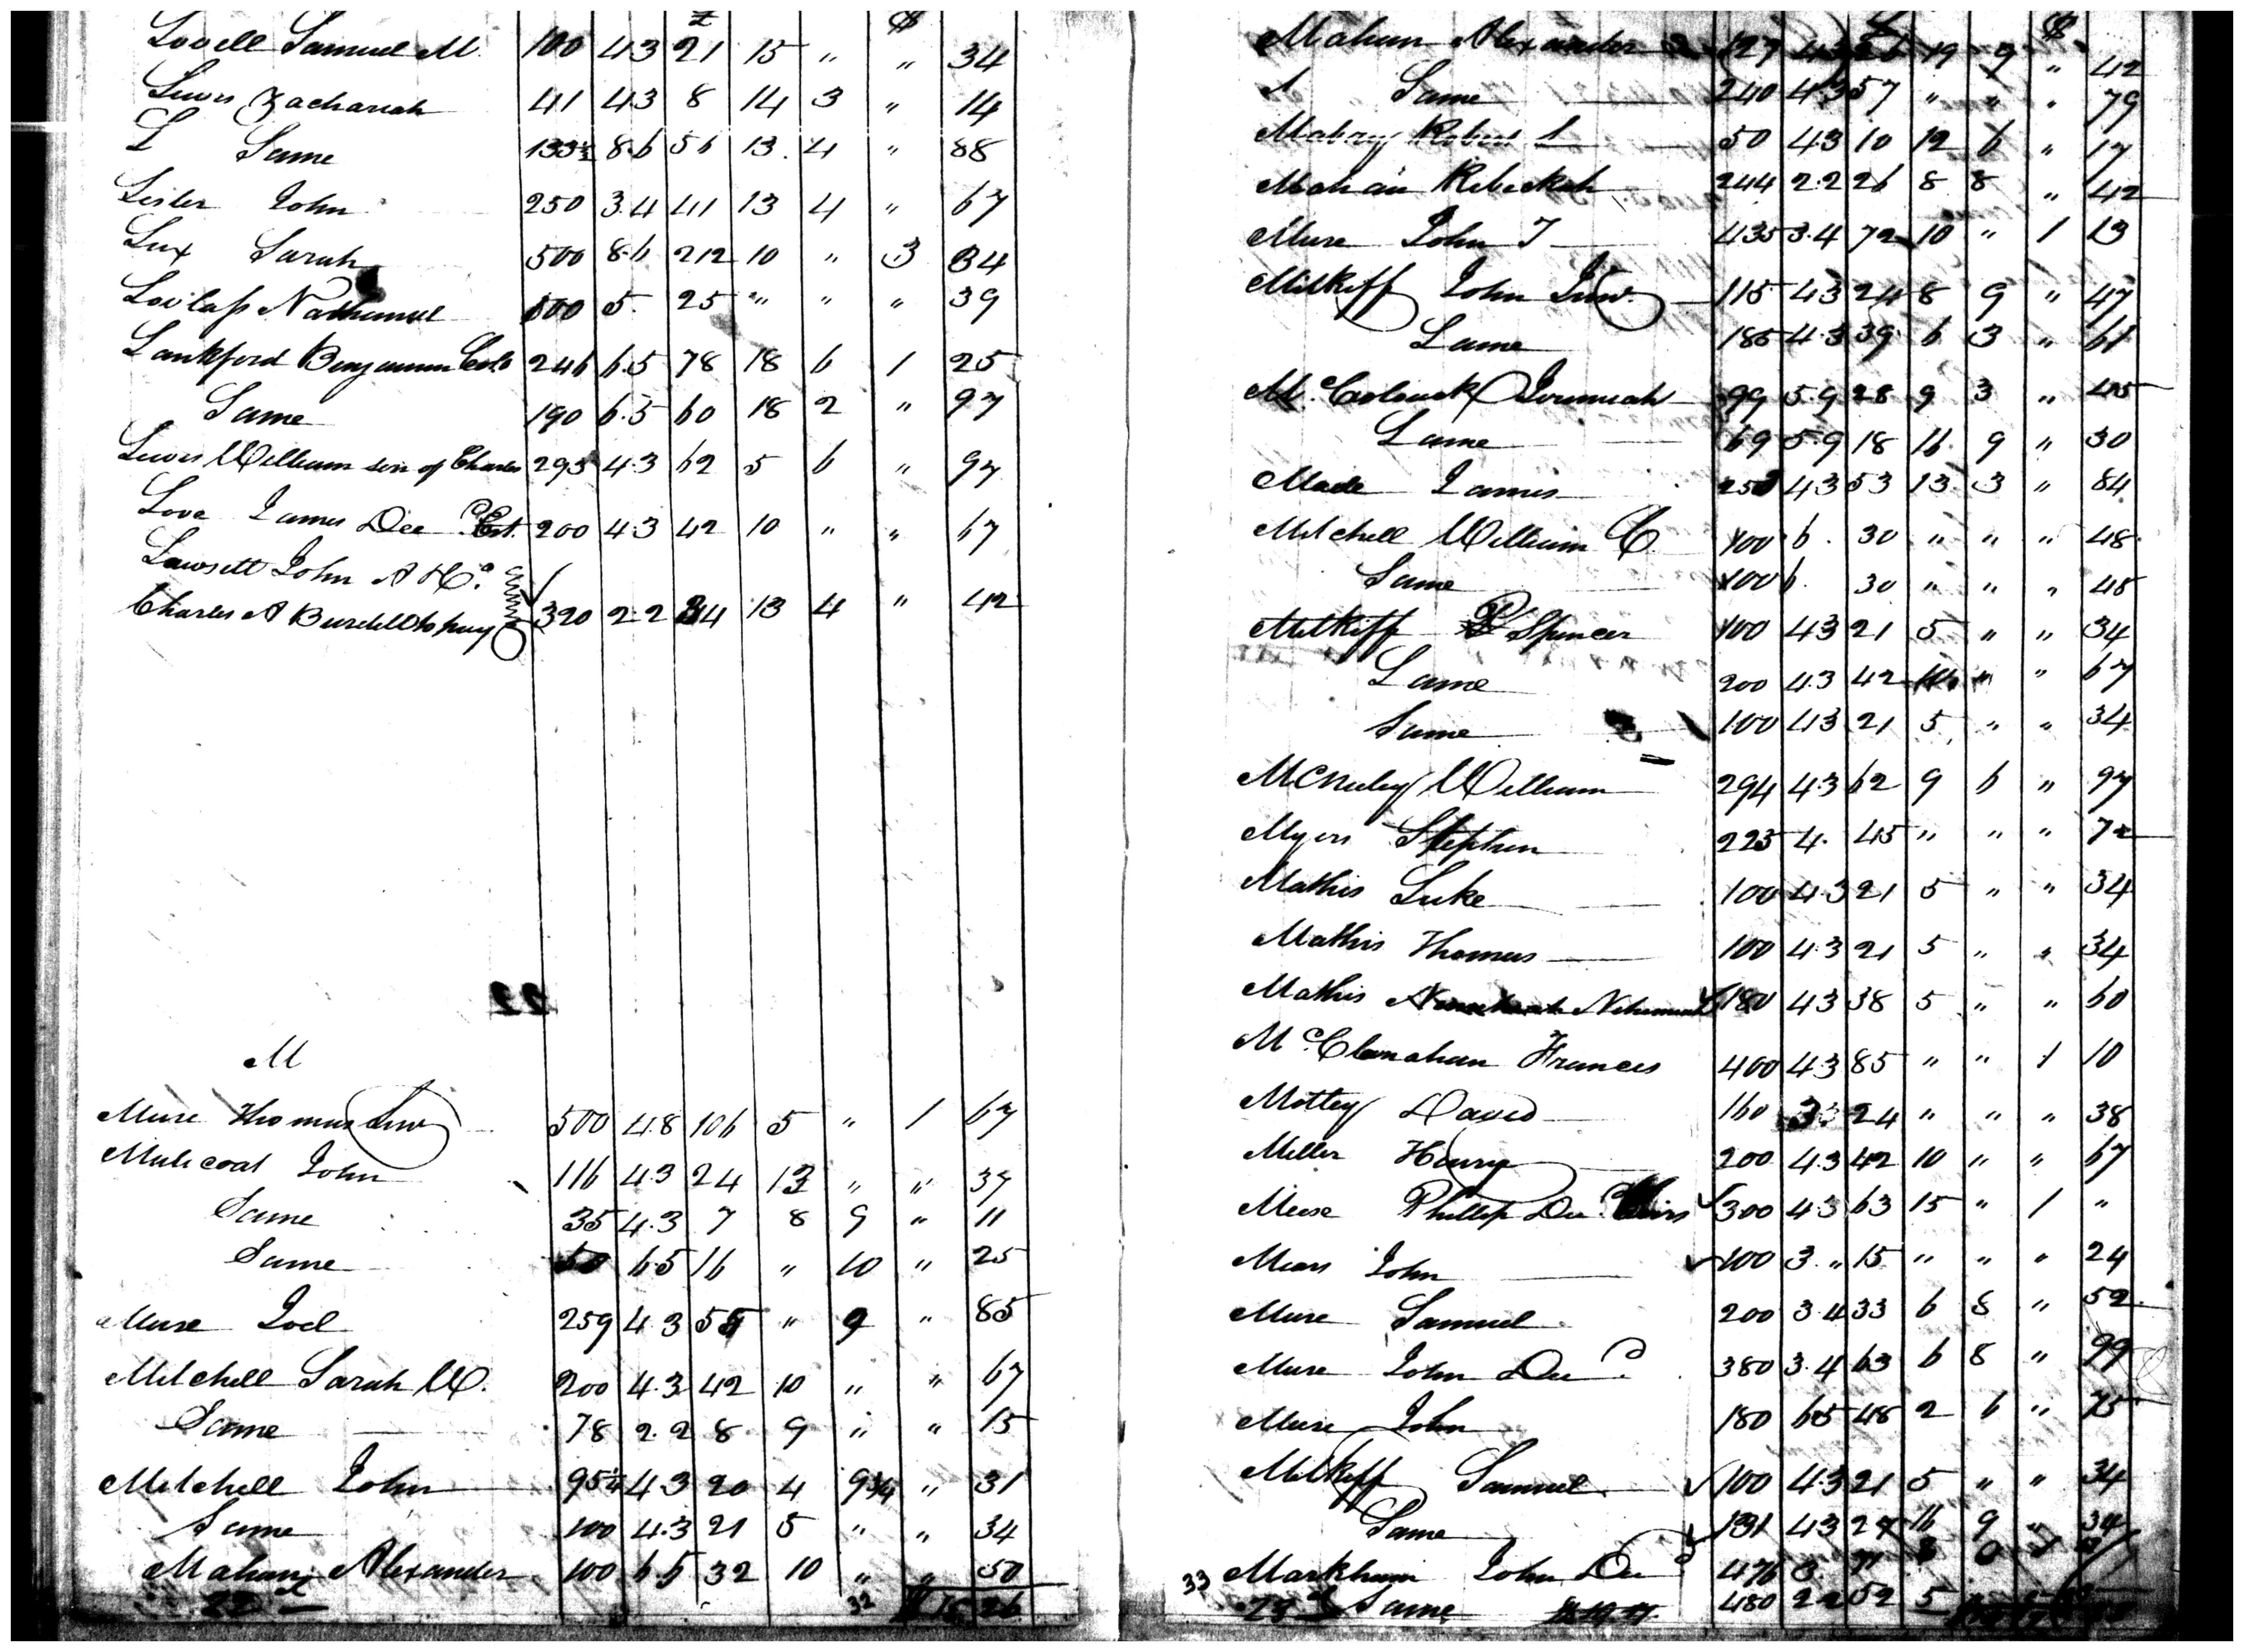 £ $
Lovell Samuel M. 100 4.3 21 15 " " 34
Lewis Zachariah 41 4.3 8 14 3 " 14
L Same 133⅓ 8.6 56 13. 4 " 88
Lester John 250 3.4 41 13 4 " 67
Lux Sarah 500 8.6 212 10 " 3 34
Lovlass Nathaniel 100 5. 25 " " " 39
Lankford Benjamin 246 6.5 78 18 6 1 25
Same 190 6.5 60 18 2 " 97
Lewis William son of Charles 293 4.3 62 5 6 " 97
Love James Decd. Est. 200 4.3 42 10 " " 67
John A
Charles A Burdett to pay 320 2.2 34 13 4 " 42
22
M
Muse Thomas Senr 500 4.3 106 5 " 1 67
Mulicoat John 116 4.3 24 13 " " 37
Same 35 4.3 7 8 9 " 11
Same 50 6.5 16 " 10 " 25
Muse Joel 259 4.3 55 " 9 " 85
Mitchell Sarah W. 200 4.3 42 10 " " 67
Same 78 2.2 8 9 " " 15
Mitchell John 95¼ 4.3 20 4 9¼ " 31
Same 100 4.3 21 5 " " 34
Mahan Alexander 100 6.5 32 10 " " 50
32 $ 15 26
£ $
Mahan Alexander 127 4.3 26 19 9 " 42
Same 240 4.3 57 " " " 79
Mabray Robert 50 4.3 10 12 6 " 17
Mahan Rebeckah 244 2.2 26 8 8 " 42
Muse John T 435 3.4 72 10 " 1 13
Mitkiff John Junr. 115 4.3 24 8 9 " 47
Same 185 4.3 39 6 3 " 61
Jeremiah 99 5.9 28 9 3 " 45
Same 69 5.9 18 16 9 " 30
Made James 253 4.3 53 13. 3 " 84
Mitchell William C. 100 6. 30 " " " 48
Same 100 6. 30 " " " 48
Mitkiff Spencer 100 4.3 21 5 " " 34
Same 200 4.3 42 10 " " 67
Same 100 4.3 21 5 " " 34
McNeeley William 294 4.3 62 9 6 " 97
Myers Stephen 225 4. 45 " " " 72
Mathis Luke 100 4.3 21 5 " " 34
Mathis Thomas 100 4.3 21 5 " " 34
Mathis Nehemiah 180 4.3 38 5 " " 60
McClanahan Frances 400 4.3 85 " " 1 10
Mottey David 160 3. 24 " " " 38
Miller Henry 200 4.3 42 10 " " 67
Muse Phillip Decd. Heirs 300 4.3 63 15 " 1 "
Mears John 100 3. " 15 " " " 24
Muse Samuel 200 3.4 33 6 8 " 52
Muse John Decd. 380 3.4 63 6 8 " 99
Muse John 180 6.5 48 2 6 " 75
Mitkiff Samuel 100 4.3 21 5 " " 34
Same 131 4.3 27 16 9 " 34
33 Markham John Decd 476 3.
Same 480 2.2 52 5